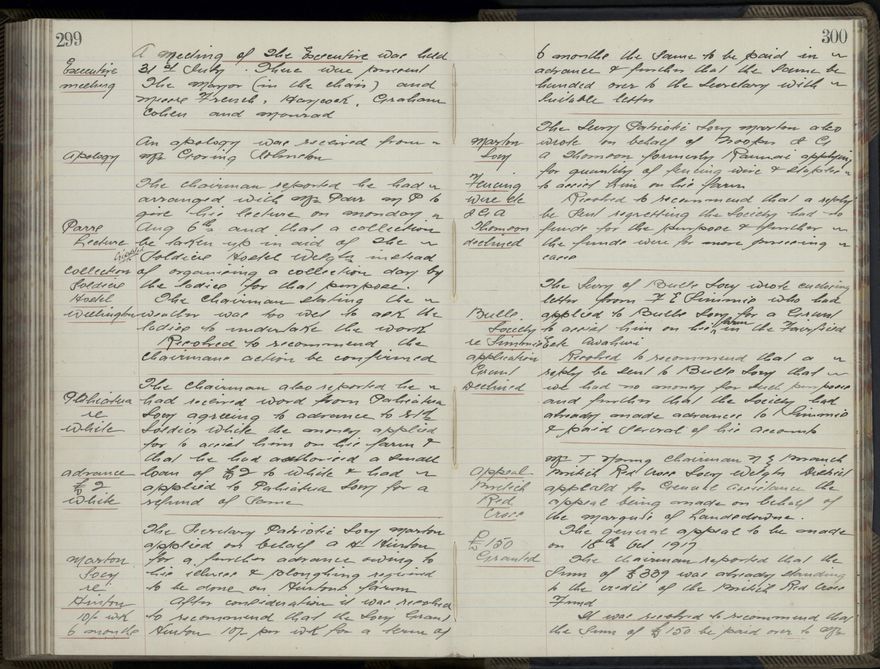 299
Executive
meeting
A meeting of The Executive was held
31st July. There were present
The Mayor (in the chair) and
Messrs French, Haycock, Graham
Cohen and Monrad
Apology
An apology was received from
Mr Johnston
Parrs
Lecture
Collection
Soldiers
Hostel
Wellington
The Chairman reported he had
arranged with Mr Parr M P to
give his lecture on Monday
Aug 6th and that a collection
be taken up in aid of The
Soldiers Hostel Wellgtn instead
of organising a collection day by
the ladies for that purpose.
The Chairman stating the
weather was too wet to ask the
ladies to undertake the work
Resolved to recommend the
Chairmans action be confirmed
Pahiatua
re
White
advance
£2
White
The Chairman also reported he
had received word from Pahiatua
Socy agreeing to advance to Rtd
Soldier White the money applied
for to assist him on his farm &
that he had authorised a small
loan of £2 to White & had
applied to Pahiatua Socy for a
refund of same
Marton
Socy
re
Hinton
10/- wk
6 months
The Secretary Patriotic Socy Marton
applied on behalf a H Hinton
for a further advance owing to
his illness & ploughing required
to be done on Hintons farm
After consideration it was resolved
to recommend that the Socy Grant
Hinton 10/- per wk for a term of
300
6 months the same to be paid in
advance & further that the same be
handed over to the Secretary with
suitable letter
Marton
Socy
Fencing
wire etc
Thomson
declined
The Secy Patriotic Socy Marton also
wrote on behalf of Trooper
a Thomson formerly applying
for quantity of fencing wire & staples
to assist him on his farm
Resolved to recommend that a reply
be sent regretting the Society had no
funds for the purpose & further
the funds were for more pressing
cases
Bulls
Society
re Simmis
application
Grant
Declined
The Secy of Bulls Socy wrote enclosing
letter from F E Simmis who had
applied to Bulls Socy for a Grant
to assist him on his farm in the Fairfield
Resolved to recommend that a
reply be sent to Bulls Socy that
we had no money for such purposes
and further that the Society had
already made advance to Simmis
& paid several of his accounts
Appeal
British
Red
Cross
£150
Granted
Mr T Young Chairman N Z Branch
British Red Cross Socy Wellgtn District
appeald for Grant assistance the
appeal being made on behalf of
the Marquis of Landsdowne.
The general appeal to be made
on 18th Oct 1917
The Chairman reported that the
sum of £339 was already standing
to the credit of the British Red Cross
Fund
It was resolved to recommend that
the sum of £150 be paid over to Mr